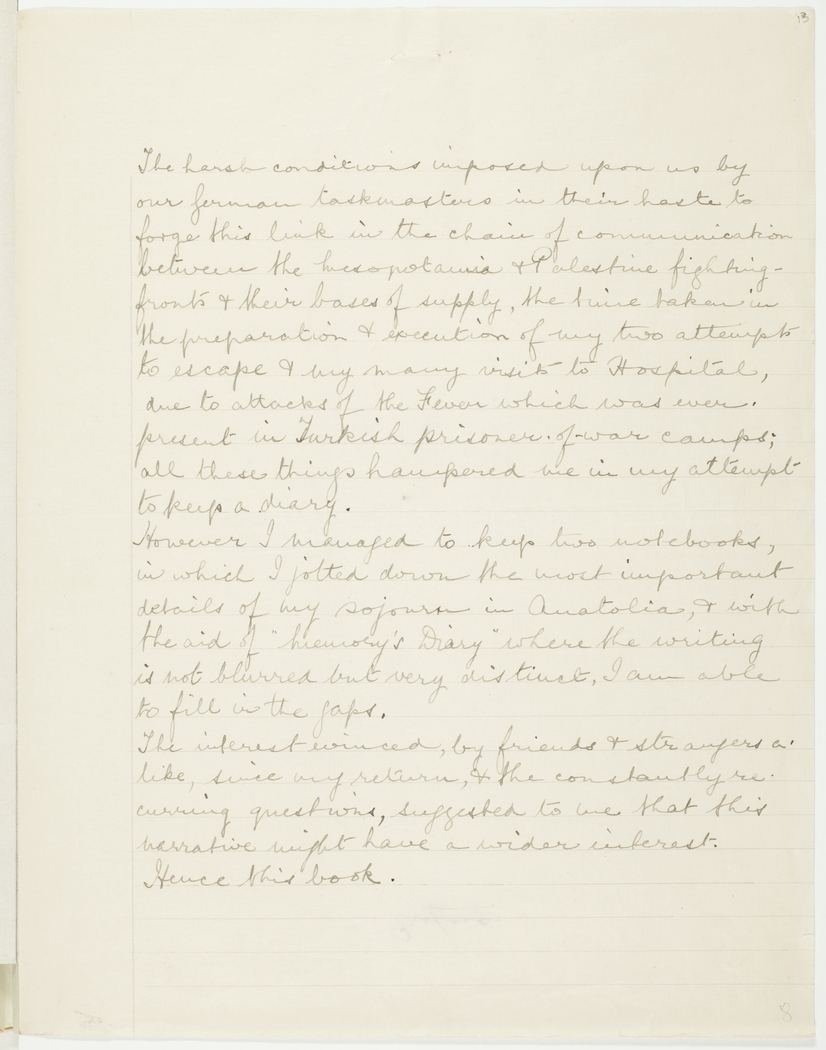 13
The harsh conditions imposed upon us by
our German taskmasters in their haste to
forge this link in the chain of communication
between the Mesopotamia & Palestine fighting-
fronts & their bases of supply, the time taken in
the preparation & execution of my two attempts
to escape & my many visits to Hospital,
due to attacks of the Fever which was ever-
present in Turkish prisoner-of-war camps;
all these things hampered me in my attempt
to keep a diary.
However I managed to keep two notebooks,
in which I jotted down the most important
details of my sojourn in Anatolia, & with
the aid of "Memory's Diary" where the writing
is not blurred but very distinct, I am able
to fill in the gaps.
The interest evinced, by friends & strangers a-
like, since my return, & the constantly re-
curring questions, suggested to me that this
narrative might have a wider interest.
Hence this book.
8